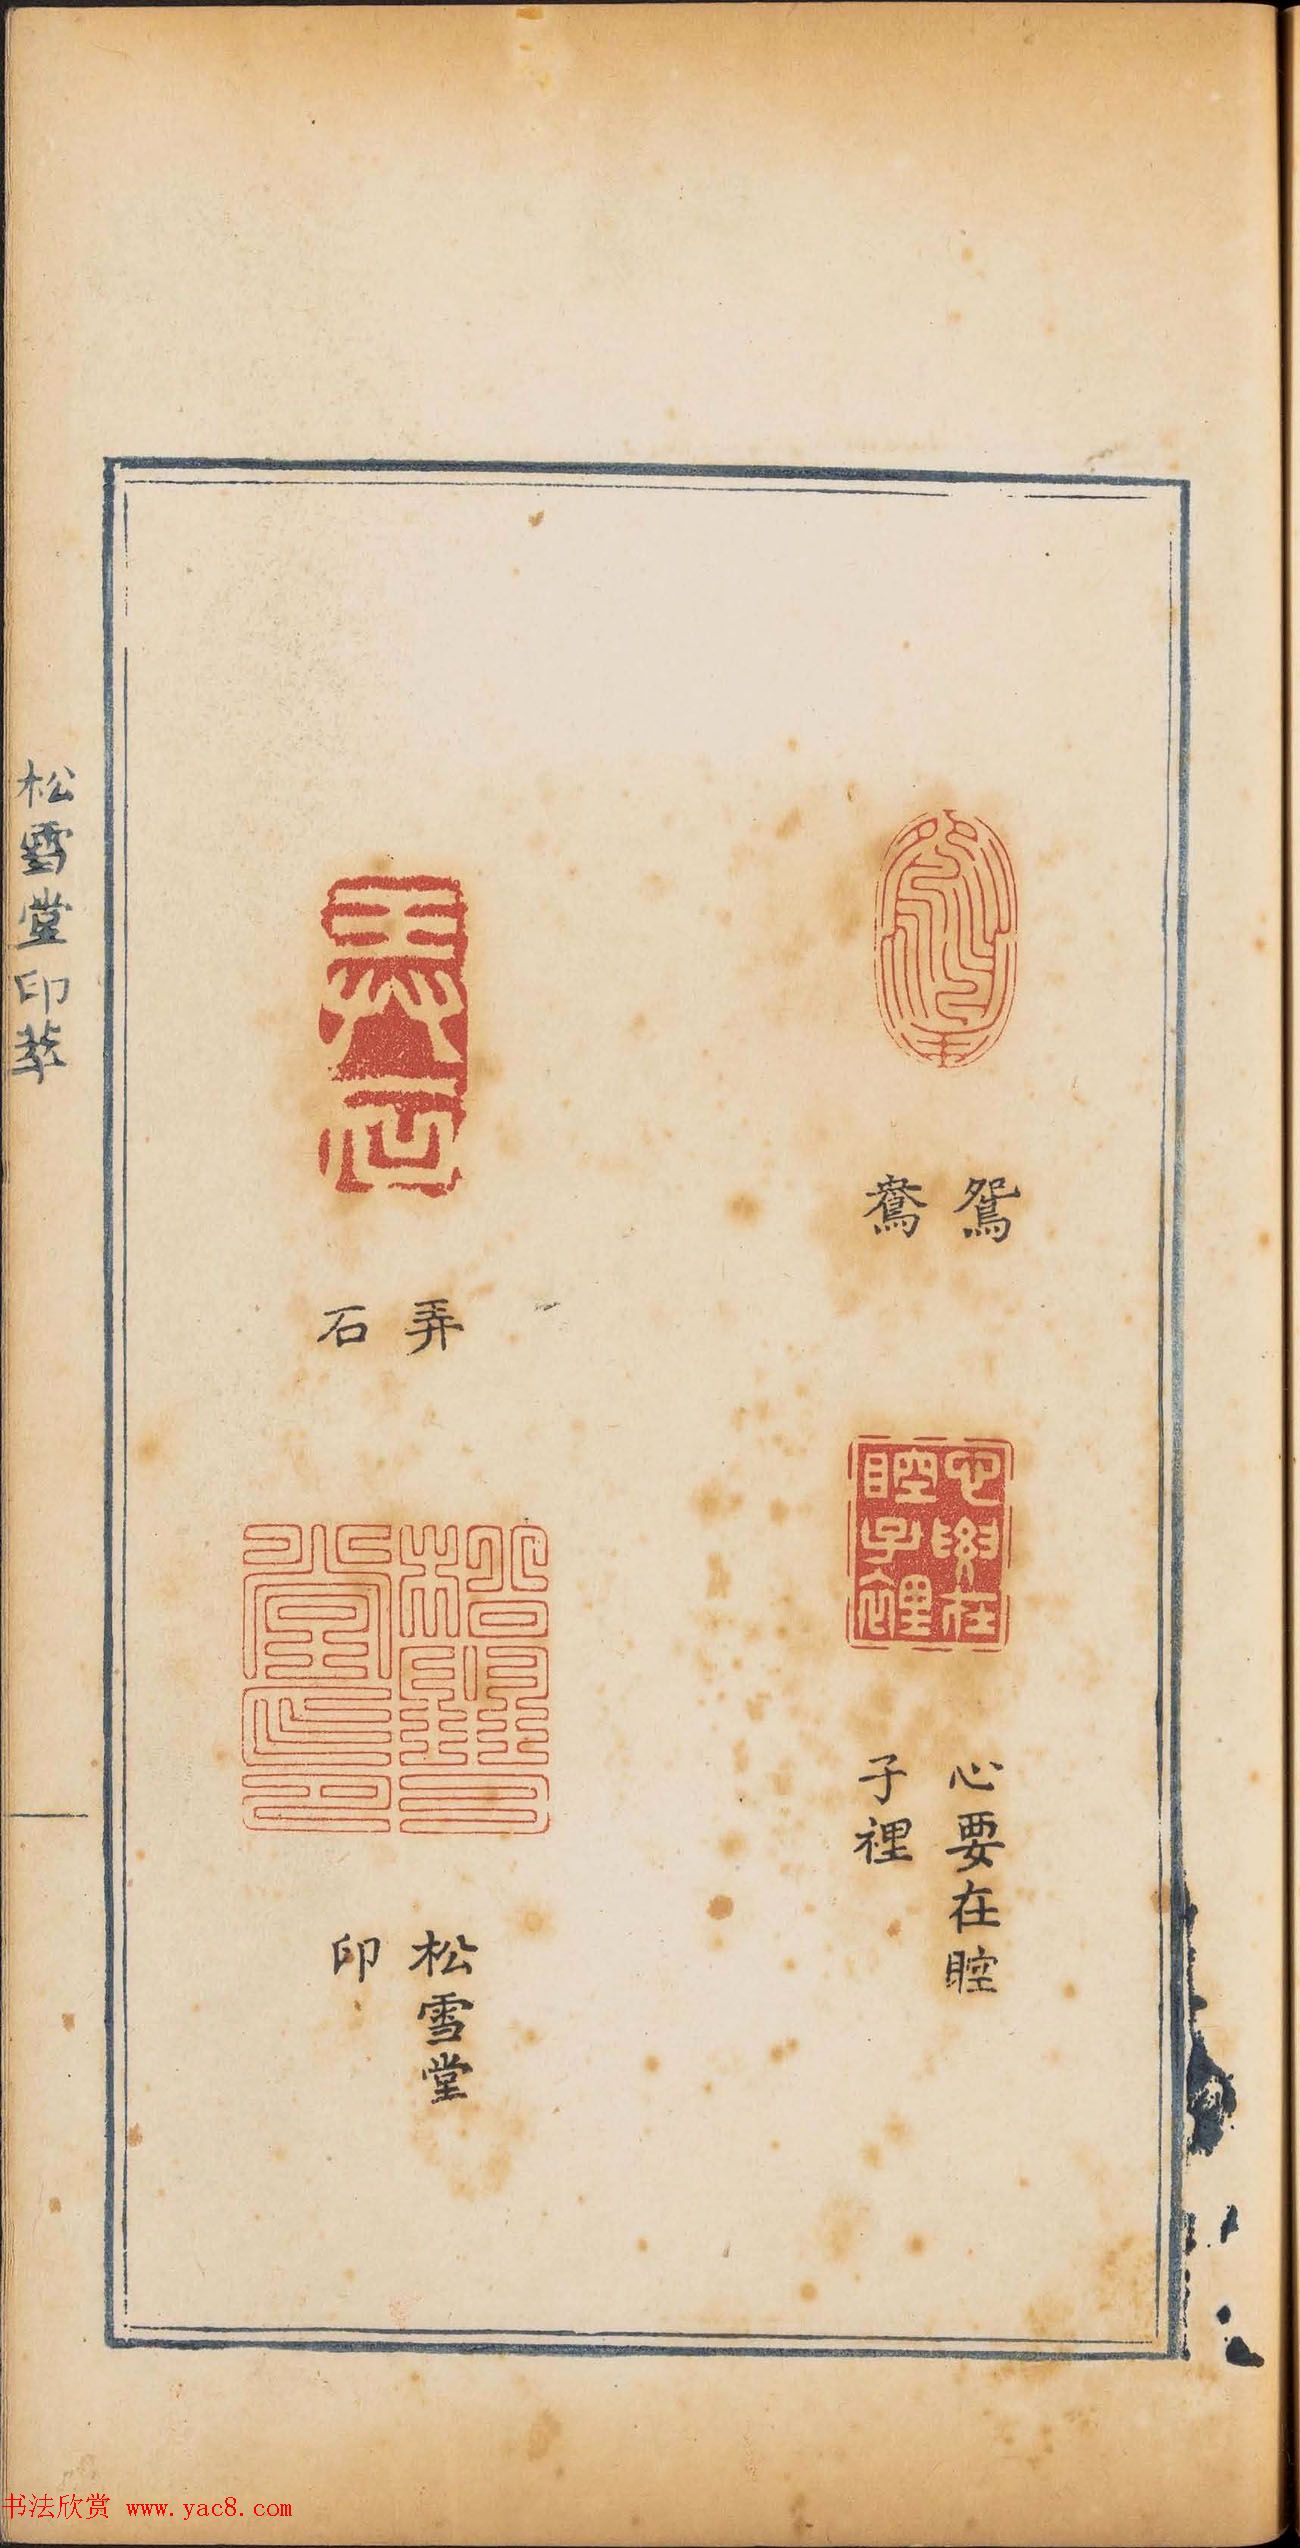 鴛
鴦
心要在腔
子裡
弄
石
松雪堂
印
松雪堂印萃
书法欣赏 www.yac8.com